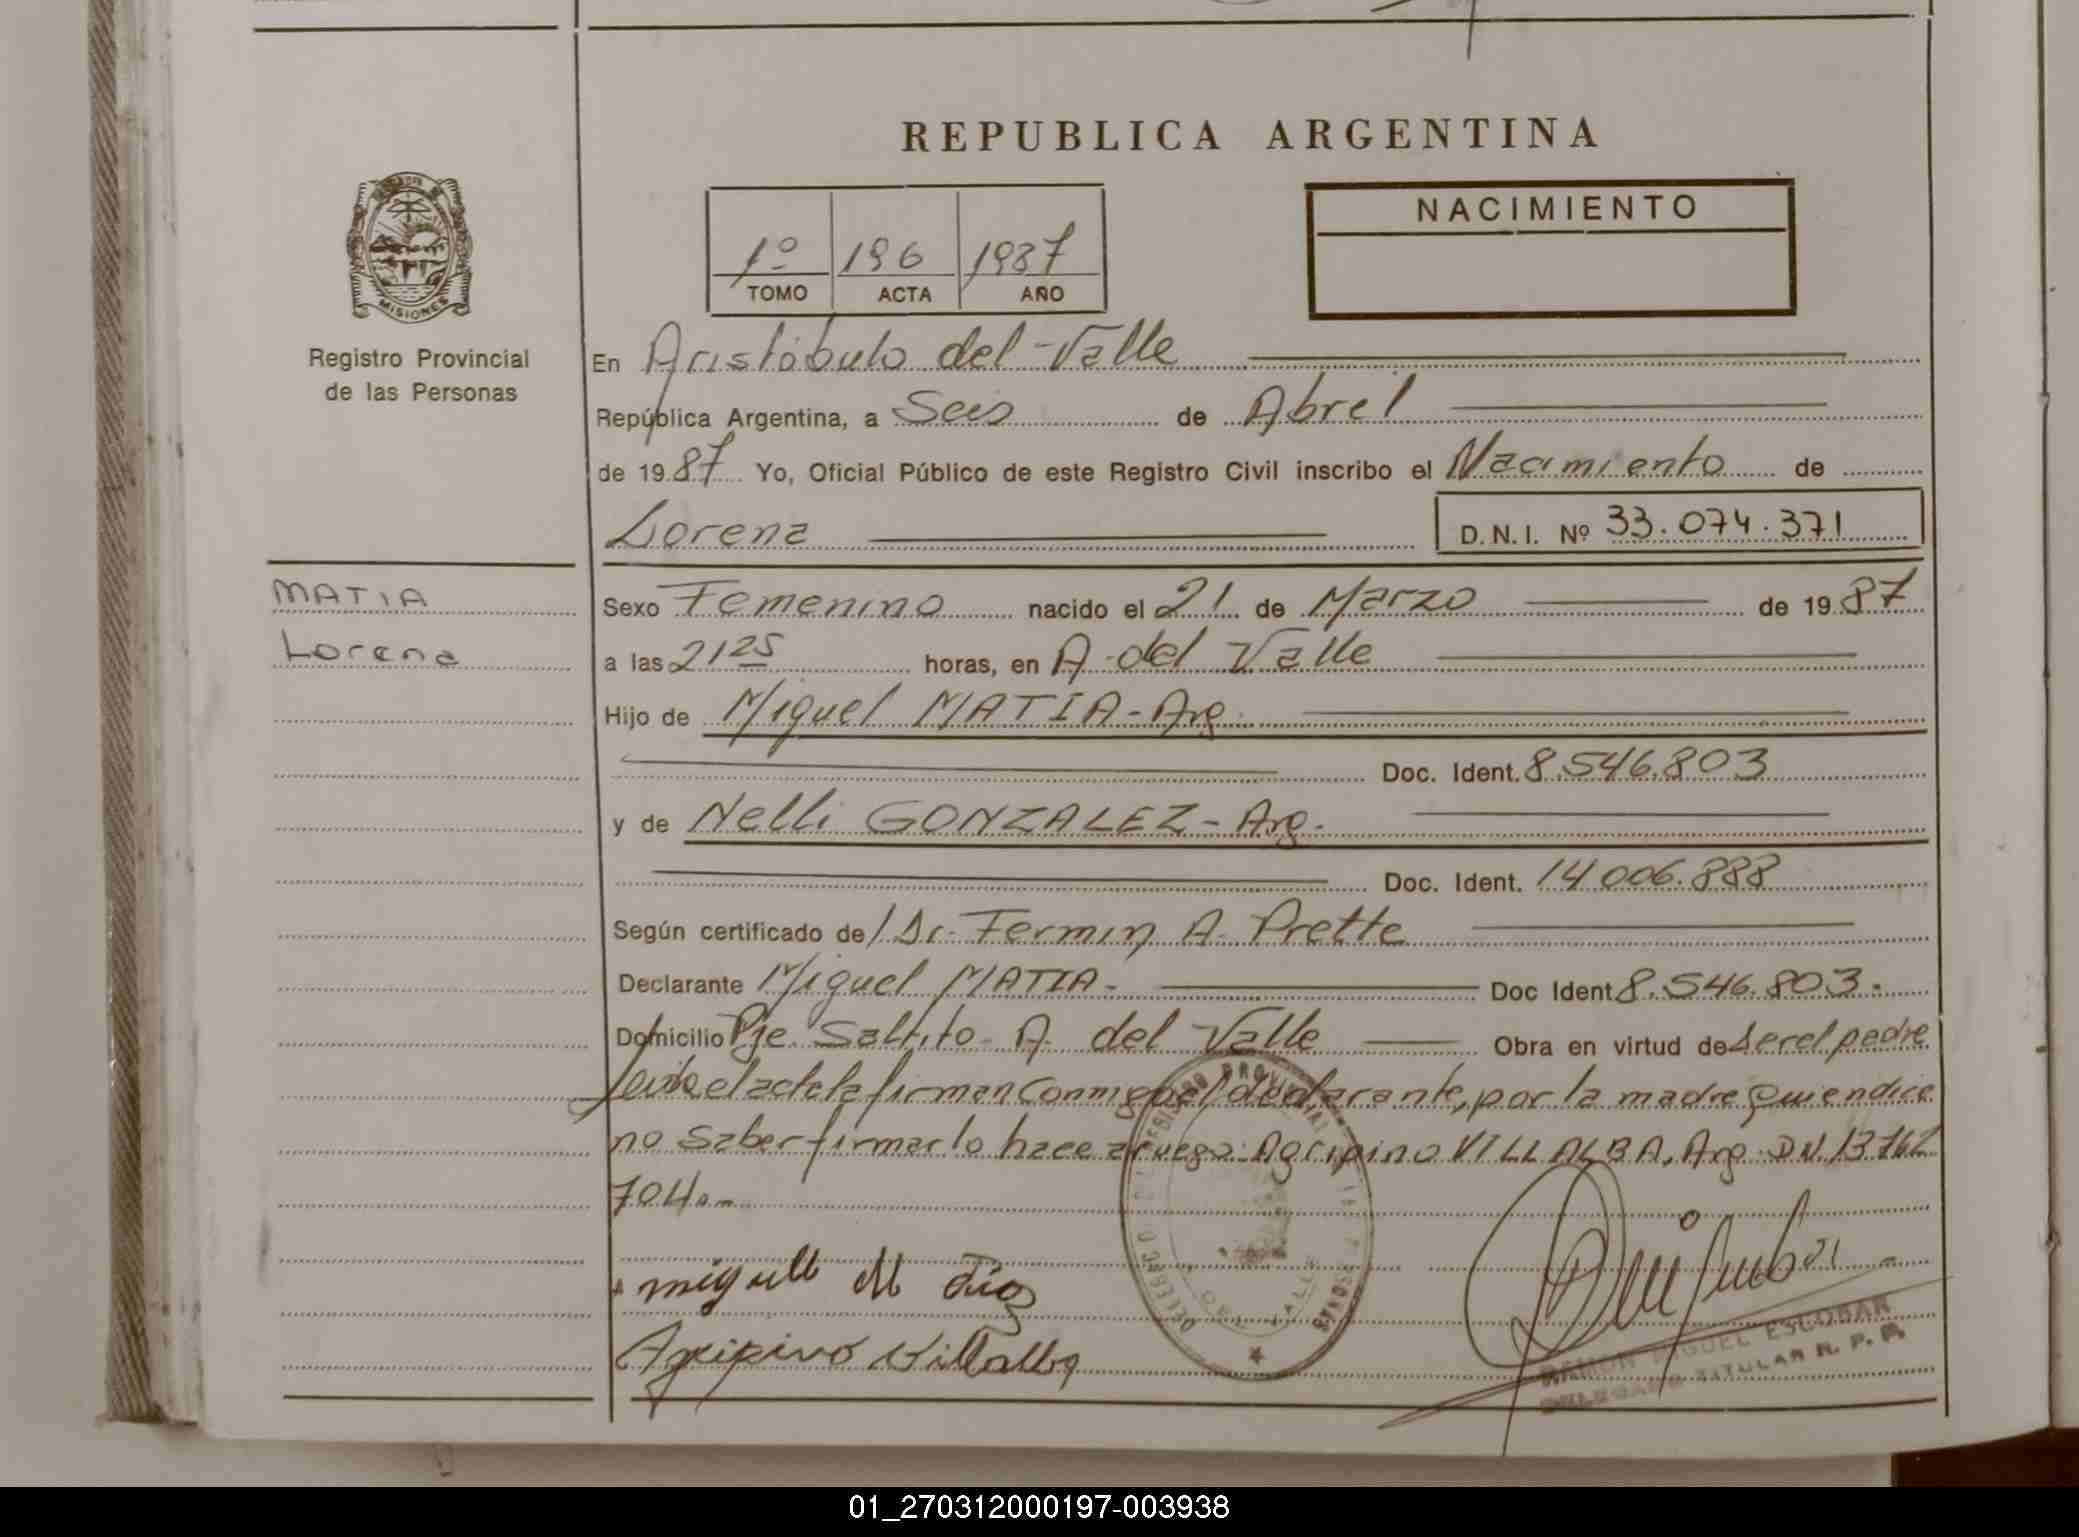 REPUBLICA ARGENTINA
1º 196 1987
TOMO ACTA AÑO
NACIMIENTO
MISIONES
Registro Provincial
de las Personas
En Aristóbulo del Valle
República Argentina, a Seis de Abril
de 1987 Yo, Oficial Público de este Registro Civil inscribo el Nacimiento de
Lorena D.N.I. Nº 33.074.371
MATIA
Lorena
Sexo Femenino nacido el 21 de Marzo de 1987
a las 21 25 horas, en A. del Valle
Hijo de Miguel MATIA-Arg.
Doc. Ident. 8.546.803
y de Nelli GONZALEZ-Arg.
Doc. Ident. 14.006.888
Según certificado de/ Dr. Fermin A. Prette
Declarante Miguel MATIA- Doc Ident 8.546.803.
Domicilio Pje. Saltito- A. del Valle Obra en virtud de ser el padre
el acta la firman conmigo el declarante, por la madre quien dice
no saber firmar lo hace a ruego: Agripino VILLALBA, Arg. DN. 13762
704.-
miguel
Agripino Villalba
RAMON MIGUEL ESCOBAR
DELEGADO TITULAR R. P. P.
01_270312000197-003938